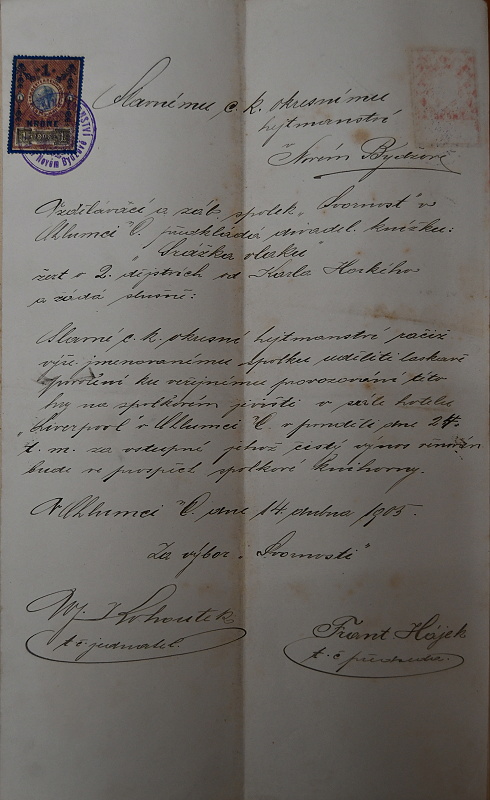 Slavnému c. k. okresnímu
hejtmanství
v Novém Bydžově
Vzdělávací a záb. spolek „Svornost" v
Chlumci C. předkládá divadel. knížku:
„Srážka vlaku"
žert o 2. dějstvích od Karla Horkého
a žádá slušně:
Slavné c. k. okresní hejtmanství račiž
výše jmenovanému spolku uděliti laskavé
povolení ku veřejnému provozování této
hry na spolkovém jevišti v sále hotelu
„Liverpool" v Chlumci C. v pondělí dne 24.
t. m. za vstupné jehož čistý výnos věnován
bude ve prospěch spolkové knihovny.
V Chlumci C. dne 14. dubna 1905.
Za výbor „Svornosti"
Kohoutek
t. č. jednatel.
Frant Hájek
t. č. předseda.